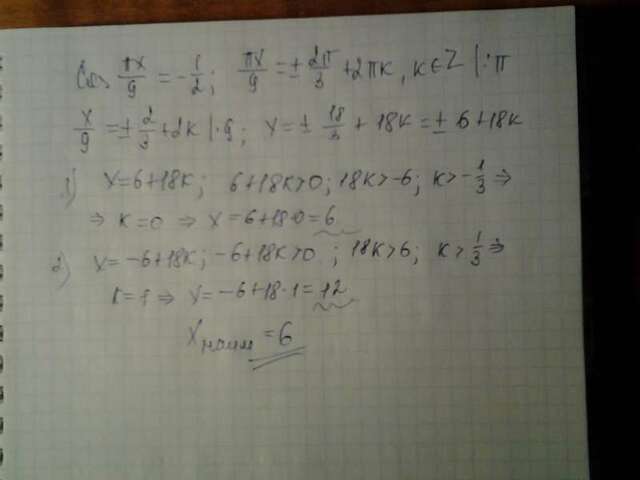 Cos πx/9 = -1/2; πx/9 = ± 2π/3 + 2πk, k∈Z |:π
x/9 = ± 2/3 + 2k |·9; x = ± 18/3 + 18k = ± 6+18k
1) x=6+18k; 6+18k>0; 18k>-6; k>-1/3 ⇒
⇒ k=0 ⇒ x=6+18·0=6
2) x=-6+18k; -6+18k>0; 18k>6; k>1/3 ⇒
k=1 ⇒ x=-6+18·1=12
xнаим=6